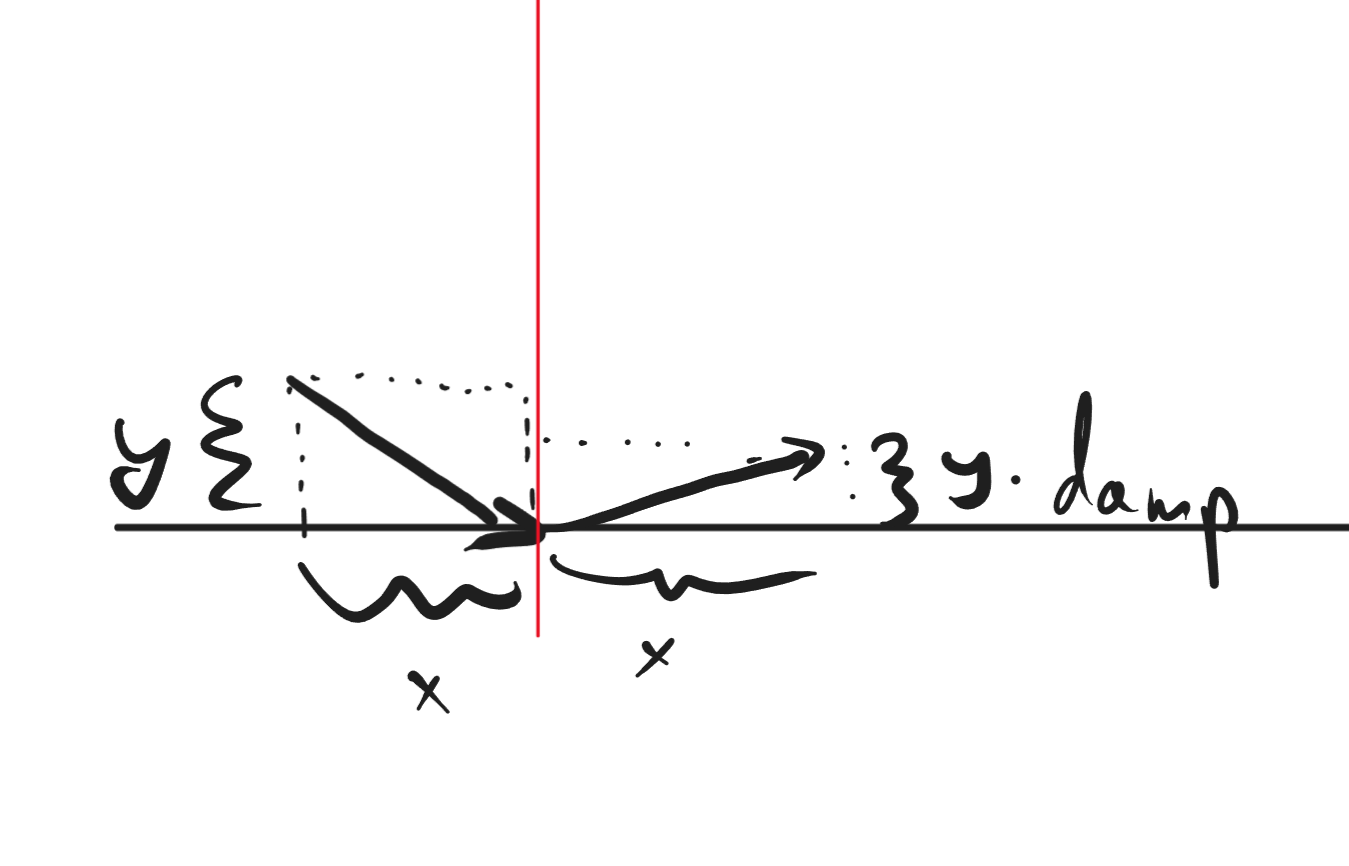 y { } y · damp
x x